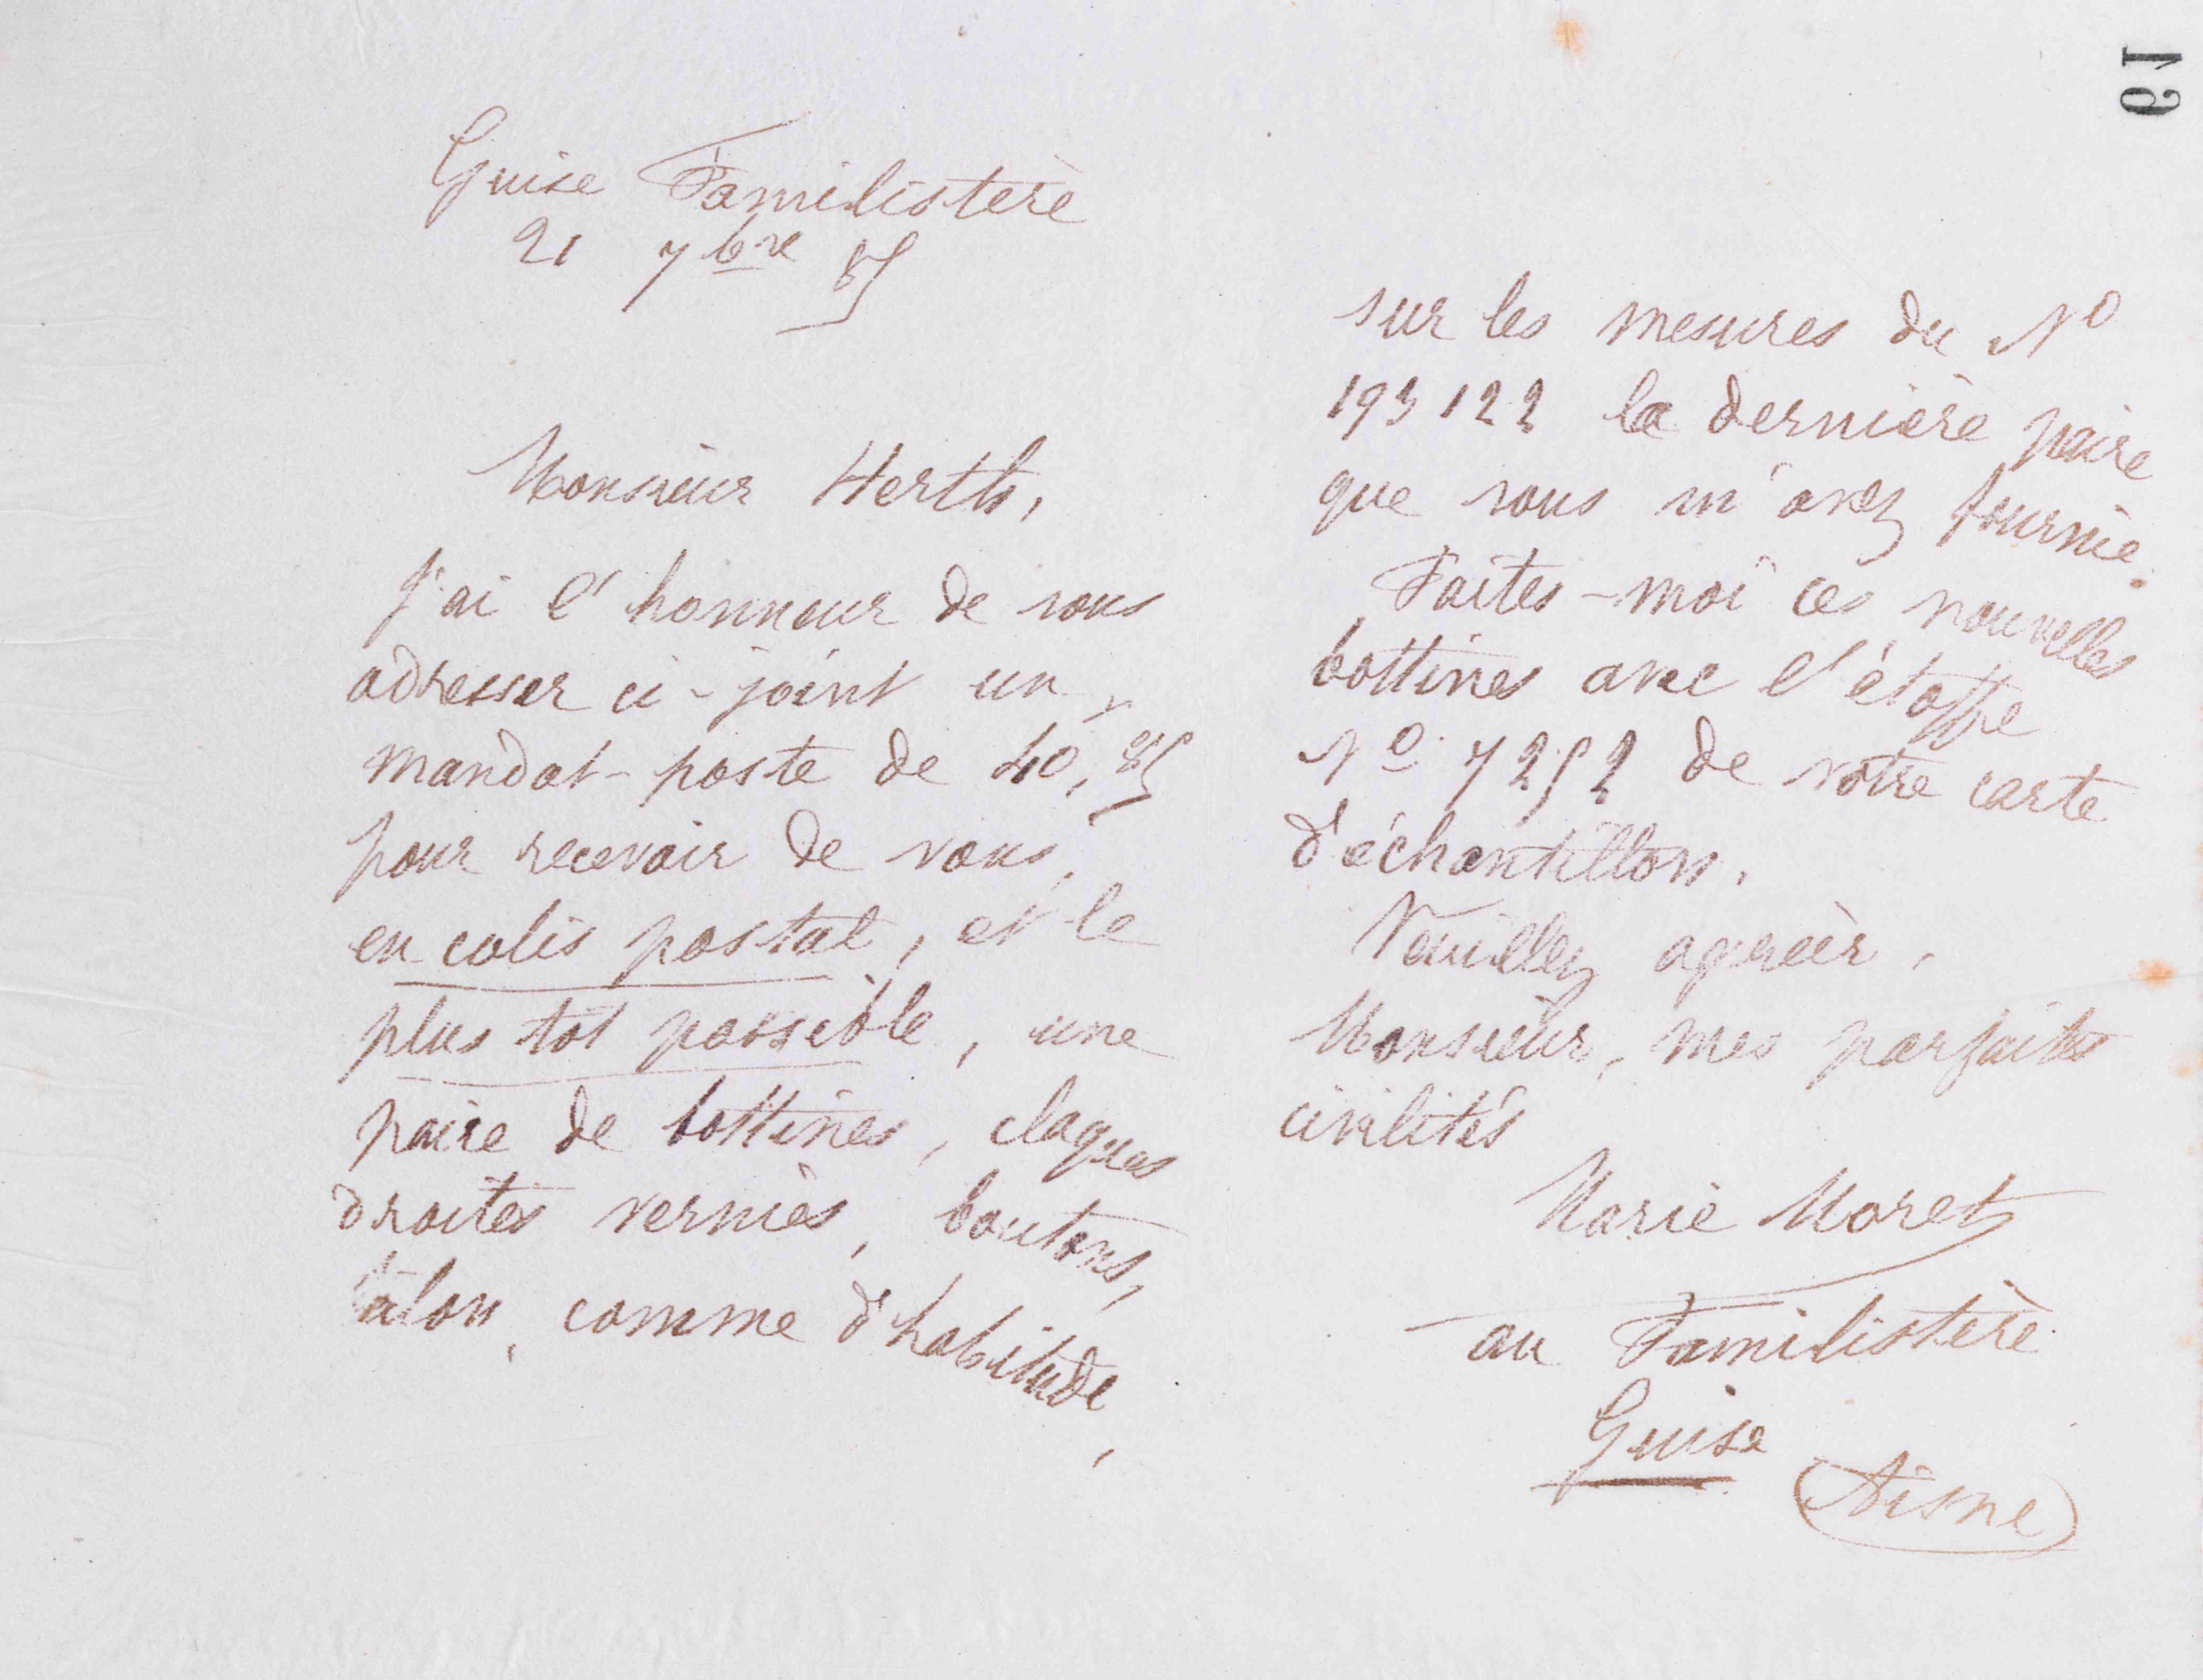 19
Guise Familistère
21 7bre 85
Monsieur Herth,
J'ai l'honneur de vous
adresser ci-joint un
mandat-poste de 40,85
pour recevoir de vous,
en colis postal, et le
plus tôt possible, une
paire de bottines, claques
droites vernies, boutons,
talon, comme d'habitude,
sur les mesures du No
193122 la dernière paire
que vous m'avez fournie.
Faites-moi ces nouvelles
bottines avec l'étoffe
No 7252 de votre carte
d'échantillons.
Veuillez agréer,
Monsieur, mes parfaites
civilités
Marie Moret
au Familistère
Guise
(Aisne)